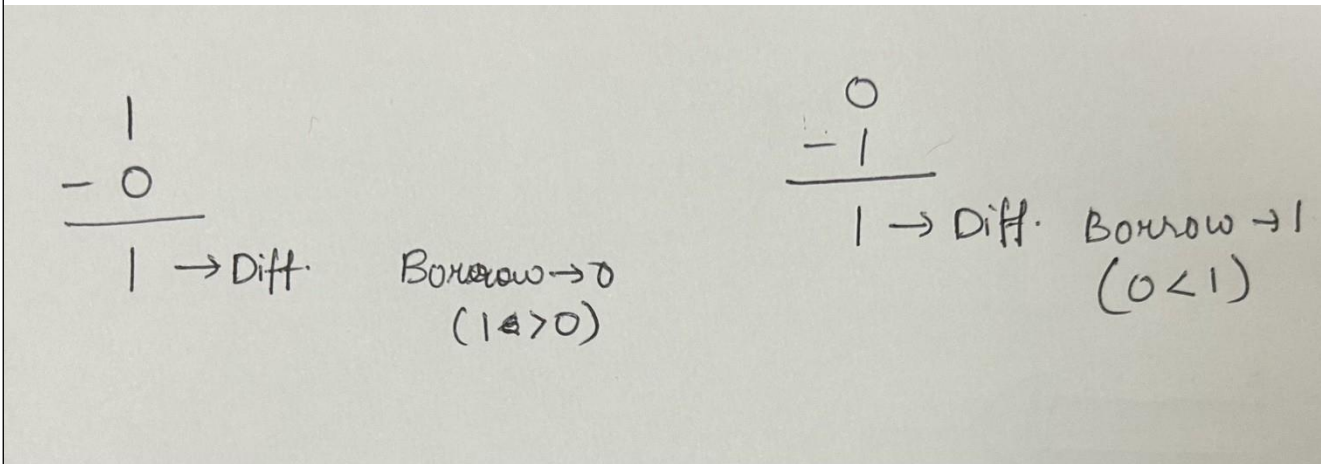 1
- 0
1 → Diff. Borrow → 0
(1 > 0)
0
- 1
1 → Diff. Borrow → 1
(0 < 1)